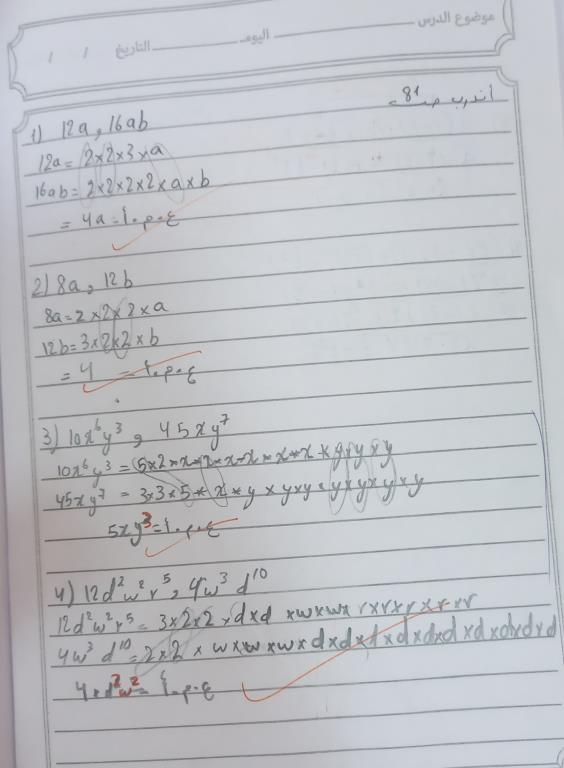 موضوع الدرس ــــــــــ اليوم ــــــــــ التاريخ / /
أتدرب ص 81
1) 12a , 16ab
12a = 2×2×3×a
16ab = 2×2×2×2×a×b
= 4a = ع.م.أ
2) 8a , 12b
8a = 2×2×2×a
12b = 3×2×2×b
= 4 = ع.م.أ
3) 10x⁶y³ , 45xy⁷
10x⁶y³ = 5×2×x×x×x×x×x×x×y×y×y
45xy⁷ = 3×3×5×x×y×y×y×y×y×y×y
5xy³ = ع.م.أ
4) 12d²w²r⁵ , 4w³d¹⁰
12d²w²r⁵ = 3×2×2×d×d×w×w×r×r×r×r×r
4w³d¹⁰ = 2×2×w×w×w×d×d×d×d×d×d×d×d×d×d
4×d²w² = ع.م.أ